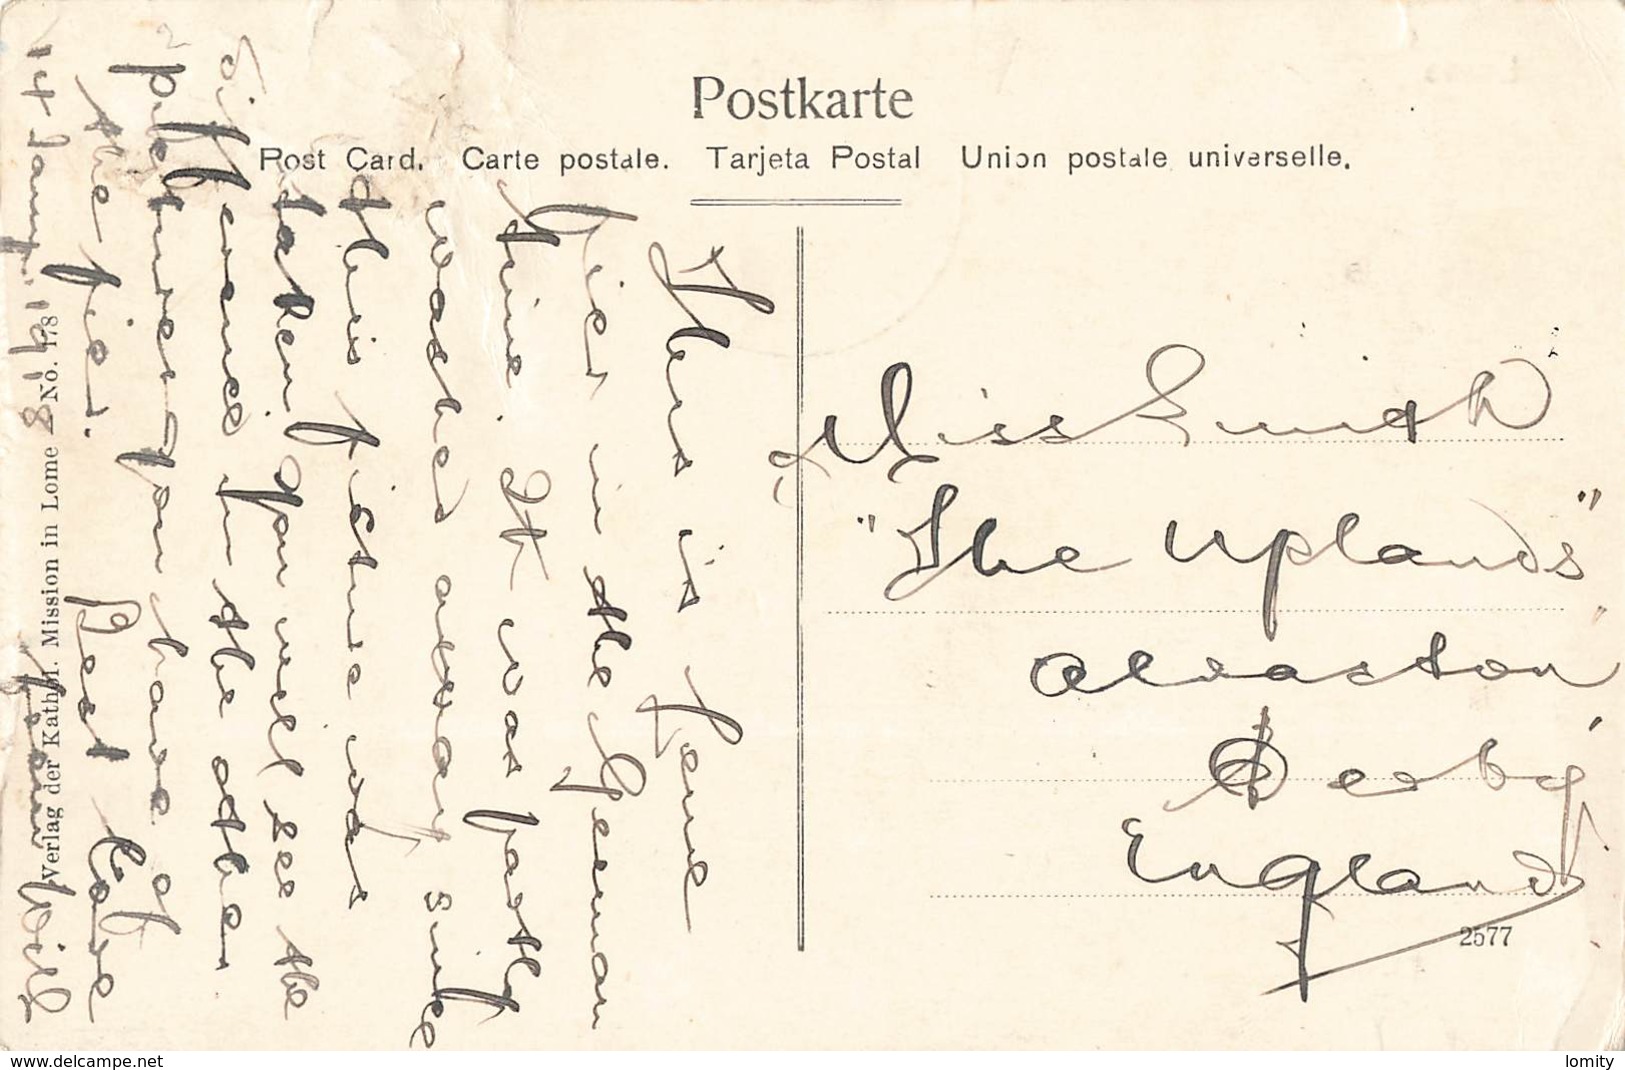 Postkarte
Post Card. Carte postale. Tarjeta Postal Union postale universelle.
This is Lome
Pier in the German
time. It was partly
washed away since
this picture was
taken. You will see the
difference in the other
pictures you have of
the pier. Best Love
from Will
14 Jany. 1918
Verlag der Kathol. Mission in Lome No. 178
Miss Smith
"The Uplands"
Alvaston
Derby
England
2577
www.delcampe.net
lomity